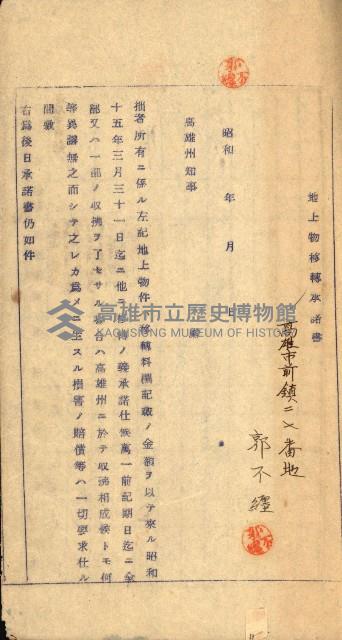 地上物移轉承諾書
高雄市前鎮二〆番地
郭不纏
昭和 年 月 日
高雄州知事 殿
拙者所有ニ係ル左記地上物件移轉料側記載ノ金額ヲ以テ來ル昭和
十五年三月三十一日迄ニ他ニ移轉ノ義承諾仕候萬一前記期日迄ニ全
部又ハ一部ノ收拂ヲ了セサル場合ハ高雄州ニ於テ收拂相成候トモ何
等異議無之而シテ之レカ爲メニ生スル損害ノ賠償等ハ一切要求仕ル
間敷
右爲後日承諾書仍如件
高雄市立歷史博物館
KAOHSIUNG MUSEUM OF HISTORY